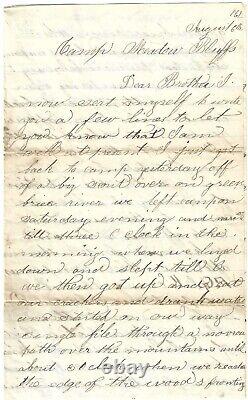 August
Camp Meadow Bluffs
Dear Brother I
now seat myself to write
you a few lines to let
you know that I am
well at present I just got
back to camp yesterday off
of a big scout over on green
brier river we left camp on
Saturday evening and
till three O clock in the
morning when we layed
down and slept till
we then got up and
our crackers and drank water
and started on our way
single file through a narrow
path over the mountains until
about O clock when we reach
the edge of the woods fronting